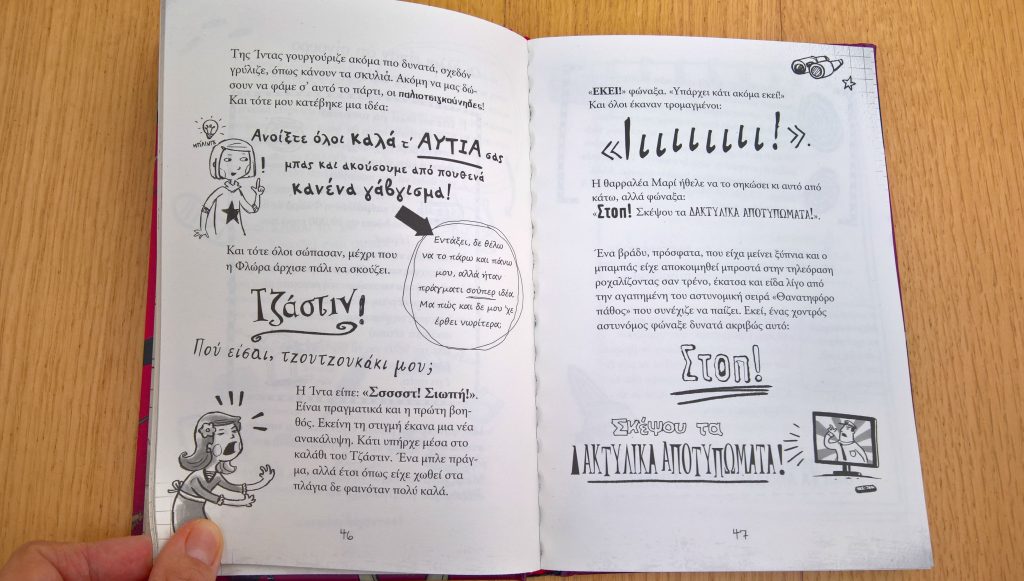 Της Ίντας γουργούριζε ακόμα πιο δυνατά, σχεδόν
γρύλιζε, όπως κάνουν τα σκυλιά. Ακόμη να μας δώ-
σουν να φάμε σ' αυτό το πάρτι, οι παλιοτσιγκούνηδες!
Και τότε μου κατέβηκε μια ιδέα:
ΜΠΛΙΝΓΚ
Ανοίξτε όλοι καλά τ' ΑΥΤΙΑ σας
μπας και ακούσουμε από πουθενά
κανένα γάβγισμα!
Εντάξει, δε θέλω
να το πάρω και πάνω
μου, αλλά ήταν
πράγματι σούπερ ιδέα.
Μα πώς και δε μου 'χε
έρθει νωρίτερα;
Και τότε όλοι σώπασαν, μέχρι που
η Φλώρα άρχισε πάλι να σκούζει.
Τζάστιν!
Πού είσαι, τζουτζουκάκι μου;
Η Ίντα είπε: «Σσσσστ! Σιωπή!».
Είναι πραγματικά και η πρώτη βοη-
θός. Εκείνη τη στιγμή έκανα μια νέα
ανακάλυψη. Κάτι υπήρχε μέσα στο
καλάθι του Τζάστιν. Ένα μπλε πράγ-
μα, αλλά έτσι όπως είχε χωθεί στα
πλάγια δε φαινόταν πολύ καλά.
46
«ΕΚΕΙ!» φώναξα. «Υπάρχει κάτι ακόμα εκεί!»
Και όλοι έκαναν τρομαγμένοι:
«Ιιιιιιιιι!».
Η θαρραλέα Μαρί ήθελε να το σηκώσει κι αυτό από
κάτω, αλλά φώναξα:
«Στοπ! Σκέψου τα ΔΑΚΤΥΛΙΚΑ ΑΠΟΤΥΠΩΜΑΤΑ!».
Ένα βράδυ, πρόσφατα, που είχα μείνει ξύπνια και ο
μπαμπάς είχε αποκοιμηθεί μπροστά στην τηλεόραση
ροχαλίζοντας σαν τρένο, έκατσα και είδα λίγο από
την αγαπημένη του αστυνομική σειρά «Θανατηφόρο
πάθος» που συνέχιζε να παίζει. Εκεί, ένας χοντρός
αστυνόμος φώναξε δυνατά ακριβώς αυτό:
Στοπ!
Σκέψου τα
ΔΑΚΤΥΛΙΚΑ ΑΠΟΤΥΠΩΜΑΤΑ!
47